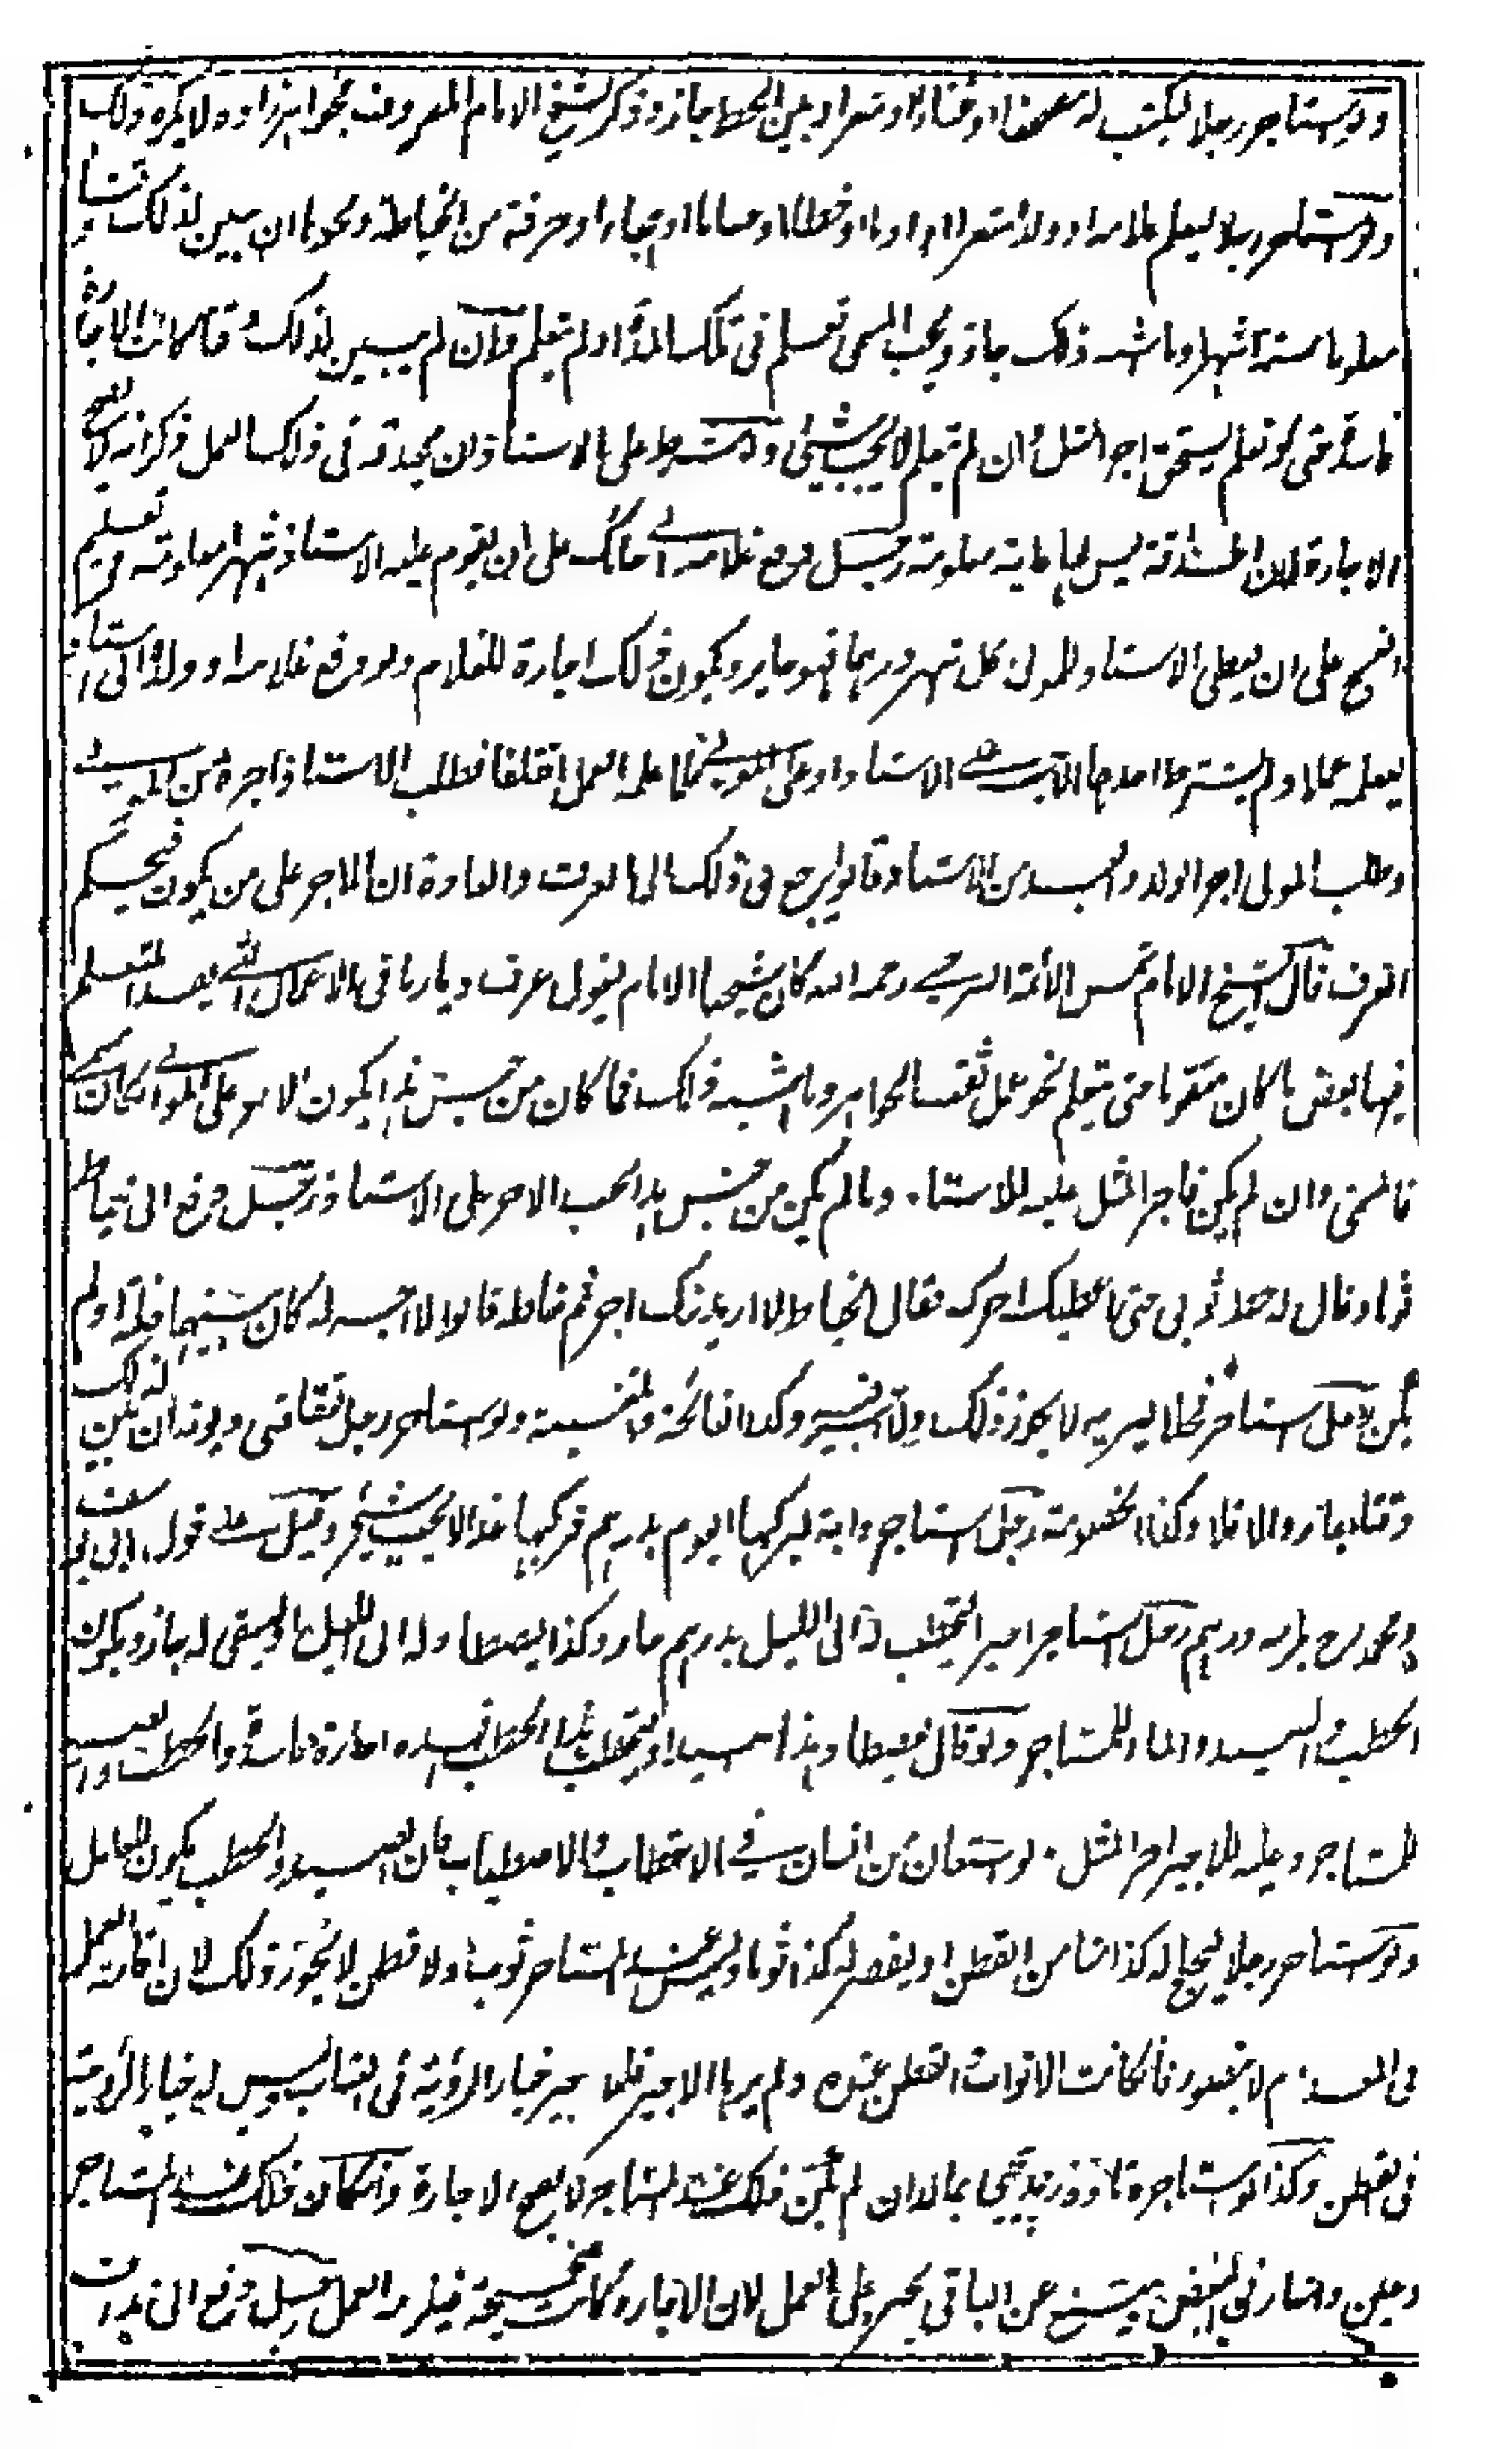 ولو استاجر رجلا ليكتب له مصحفا او غناء او شعرا وبين الخط جاز وذكر الشيخ الامام المعروف بخواهر زاده لا يكره ذلك
ولو استاجر رجلا ليعلم غلامه او ولده شعرا او ادبا او خطا او حسابا او تجارة او حرفة من الخياطة ونحوها ان بين لذلك وقتا
معلوما سنة او شهرا وما اشبه ذلك جاز ويجب المسمى تعلم في تلك المدة او لم يتعلم وان لم يبين لذلك وقتا كانت الاجارة
فاسدة حتى لو تعلم يستحق اجر المثل وان لم يتعلم لا يجب شيئ ولو شرط على الاستاذ ان يحذقه في ذلك العمل ذكر انه لا يصح
الاجارة لان الحذاقة ليس لها غاية معلومة رجل دفع غلامه الى حائك على ان يقوم عليه الاستاذ شهرا معلومة في تعليم
النسج على ان يعطى الاستاذ المولى كل شهر درهما فهو جايز ويكون ذلك اجارة للغلام ولو دفع غلامه او ولده الى استاذ
ليعلمه عملا ولم يشترط احدهما الاجر على الاستاذ او على المولى فلما علمه العمل اختلفا فطلب الاستاذ اجره من المولى
وطلب المولى اجر الولد والعبد من الاستاذ قالوا يرجع في ذلك الى العرف والعادة ان الاجر على من يكون فيحكم
العرف قال الشيخ الامام شمس الائمة السرخسي رحمه الله كان شيخنا الامام يقول عرف ديارنا في الاعمال التي يفسد المتعلم
فيها بعض ما كان متقوما حتى يتعلم نحو عمل ثقب الجواهر وما اشبه ذلك فما كان من جنس هذا يكون الاجر على المولى ان كان سمى
فالمسمى وان لم يكن فاجر المثل عليه للاستاذ وما لم يكن من جنس هذا يجب الاجر على الاستاذ رجل دفع الى خياط
ثوبا وقال له خط ثوبي حتى اعطيك اجرك فقال الخياط لا اريد منك اجر ثم خاطه قالوا لا اجر له كان بينهما خلطة او لم
يكن رجل استاجر فحلا لينزيه لا يجوز ذلك ولا اجر فيه وكذا النائحة والمغنية ولو استاجر رجل يتقاضى ديونه ان بين لذلك
وقتا جاز والا فلا وكذا الخصومة رجل استاجر دابة ليركبها اليوم بدرهم فركبها غدا لا يجب شيئ وقيل على قول ابي يوسف
ومحمد رح يلزمه درهم رجل استاجر اجيرا ليحتطب له الى الليل بدرهم جاز وكذا ليصطاد له الى الليل او ليسقى له جاز ويكون
الحطب والصيد والماء للمستاجر ولو قال ليصطاد هذا الصيد او ليحتطب هذا الحطب فهذه اجارة فاسدة والحطب والصيد
للمستاجر وعليه للاجير اجر المثل ولو استعان من انسان في الاحتطاب والاصطياد فان الصيد والحطب يكون للعامل
ولو استاجر رجلا ليحلج له كذا منا من القطن او يقصر له كذا ثوبا وليس عند المستاجر ثوب ولا قطن لا يجوز ذلك لان اقامة العمل
في المعدوم لا يتصور فان كانت الاثواب والقطن عنده ولم يرها الاجير فلها يخير خيار الرؤية في الثياب وليس له خيار الرؤية
في القطن وكذا لو استاجره ان لم يكن ذلك عند المستاجر لا يصح الاجارة وان كان ذلك عند المستاجر
وعين واختار في البعض يمتنع عن الباقي يجبر على العمل لان الاجارة كانت صحيحة فيلزمه العمل رجل دفع الى نداف